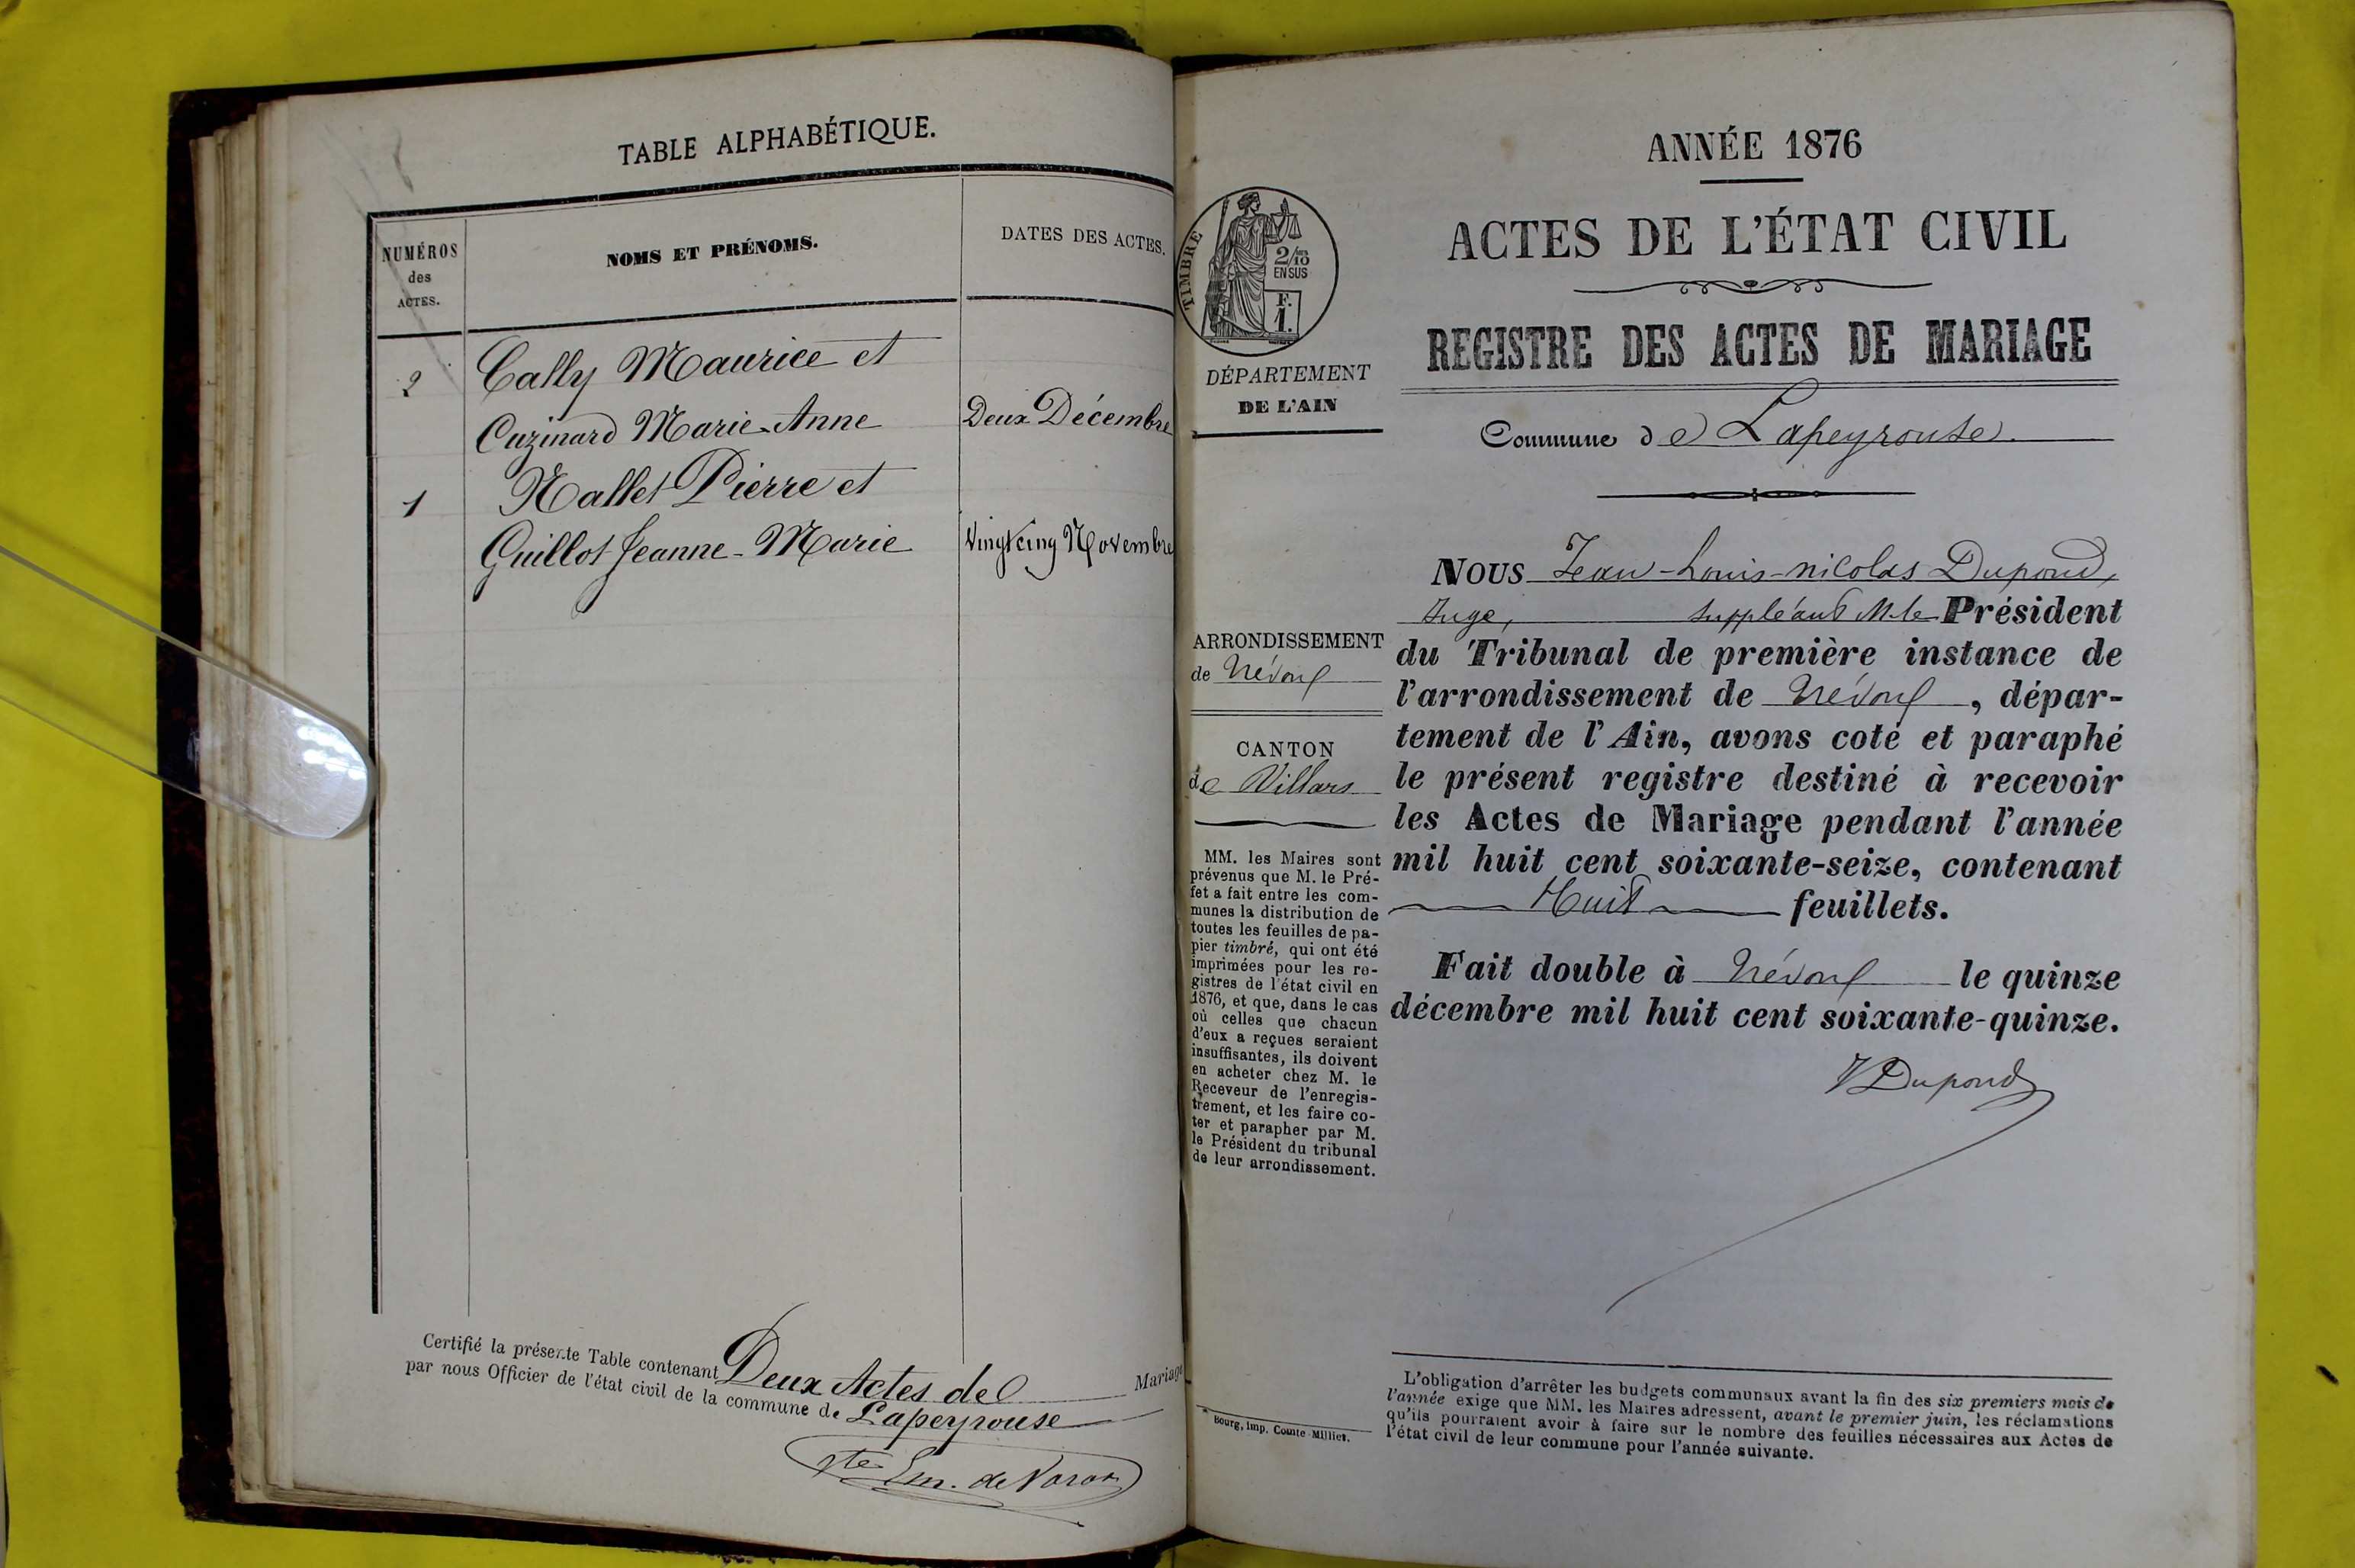 TABLE ALPHABÉTIQUE.
NUMÉROS
des
ACTES.
NOMS ET PRÉNOMS.
DATES DES ACTES.
2
Cally Maurice et
Cuzinard Marie-Anne
Deux Décembre
1
Nallet Pierre et
Guillot Jeanne-Marie
Vingt cinq Novembre
Certifié la présente Table contenant Deux Actes de Mariage
par nous Officier de l'état civil de la commune de Lapeyrouse
ANNÉE 1876
ACTES DE L'ÉTAT CIVIL
REGISTRE DES ACTES DE MARIAGE
TIMBRE
2/10
EN SUS
F.
1.
DÉPARTEMENT
DE L'AIN
Commune de Lapeyrouse.
ARRONDISSEMENT
de Trévoux
CANTON
de Villars
MM. les Maires sont
prévenus que M. le Pré-
fet a fait entre les com-
munes la distribution de
toutes les feuilles de pa-
pier timbré, qui ont été
imprimées pour les re-
gistres de l'état civil en
1876, et que, dans le cas
où celles que chacun
d'eux a reçues seraient
insuffisantes, ils doivent
en acheter chez M. le
Receveur de l'enregis-
trement, et les faire co-
ter et parapher par M.
le Président du tribunal
de leur arrondissement.
Bourg, imp. Comte-Milliet.
NOUS Jean-Louis-nicolas Dupond,
Juge, suppléant M. le Président
du Tribunal de première instance de
l'arrondissement de Trévoux, dépar-
tement de l'Ain, avons coté et paraphé
le présent registre destiné à recevoir
les Actes de Mariage pendant l'année
mil huit cent soixante-seize, contenant
Huit feuillets.
Fait double à Trévoux le quinze
décembre mil huit cent soixante-quinze.
Dupond
L'obligation d'arrêter les budgets communaux avant la fin des six premiers mois de
l'année exige que MM. les Maires adressent, avant le premier juin, les réclamations
qu'ils pourraient avoir à faire sur le nombre des feuilles nécessaires aux Actes de
l'état civil de leur commune pour l'année suivante.